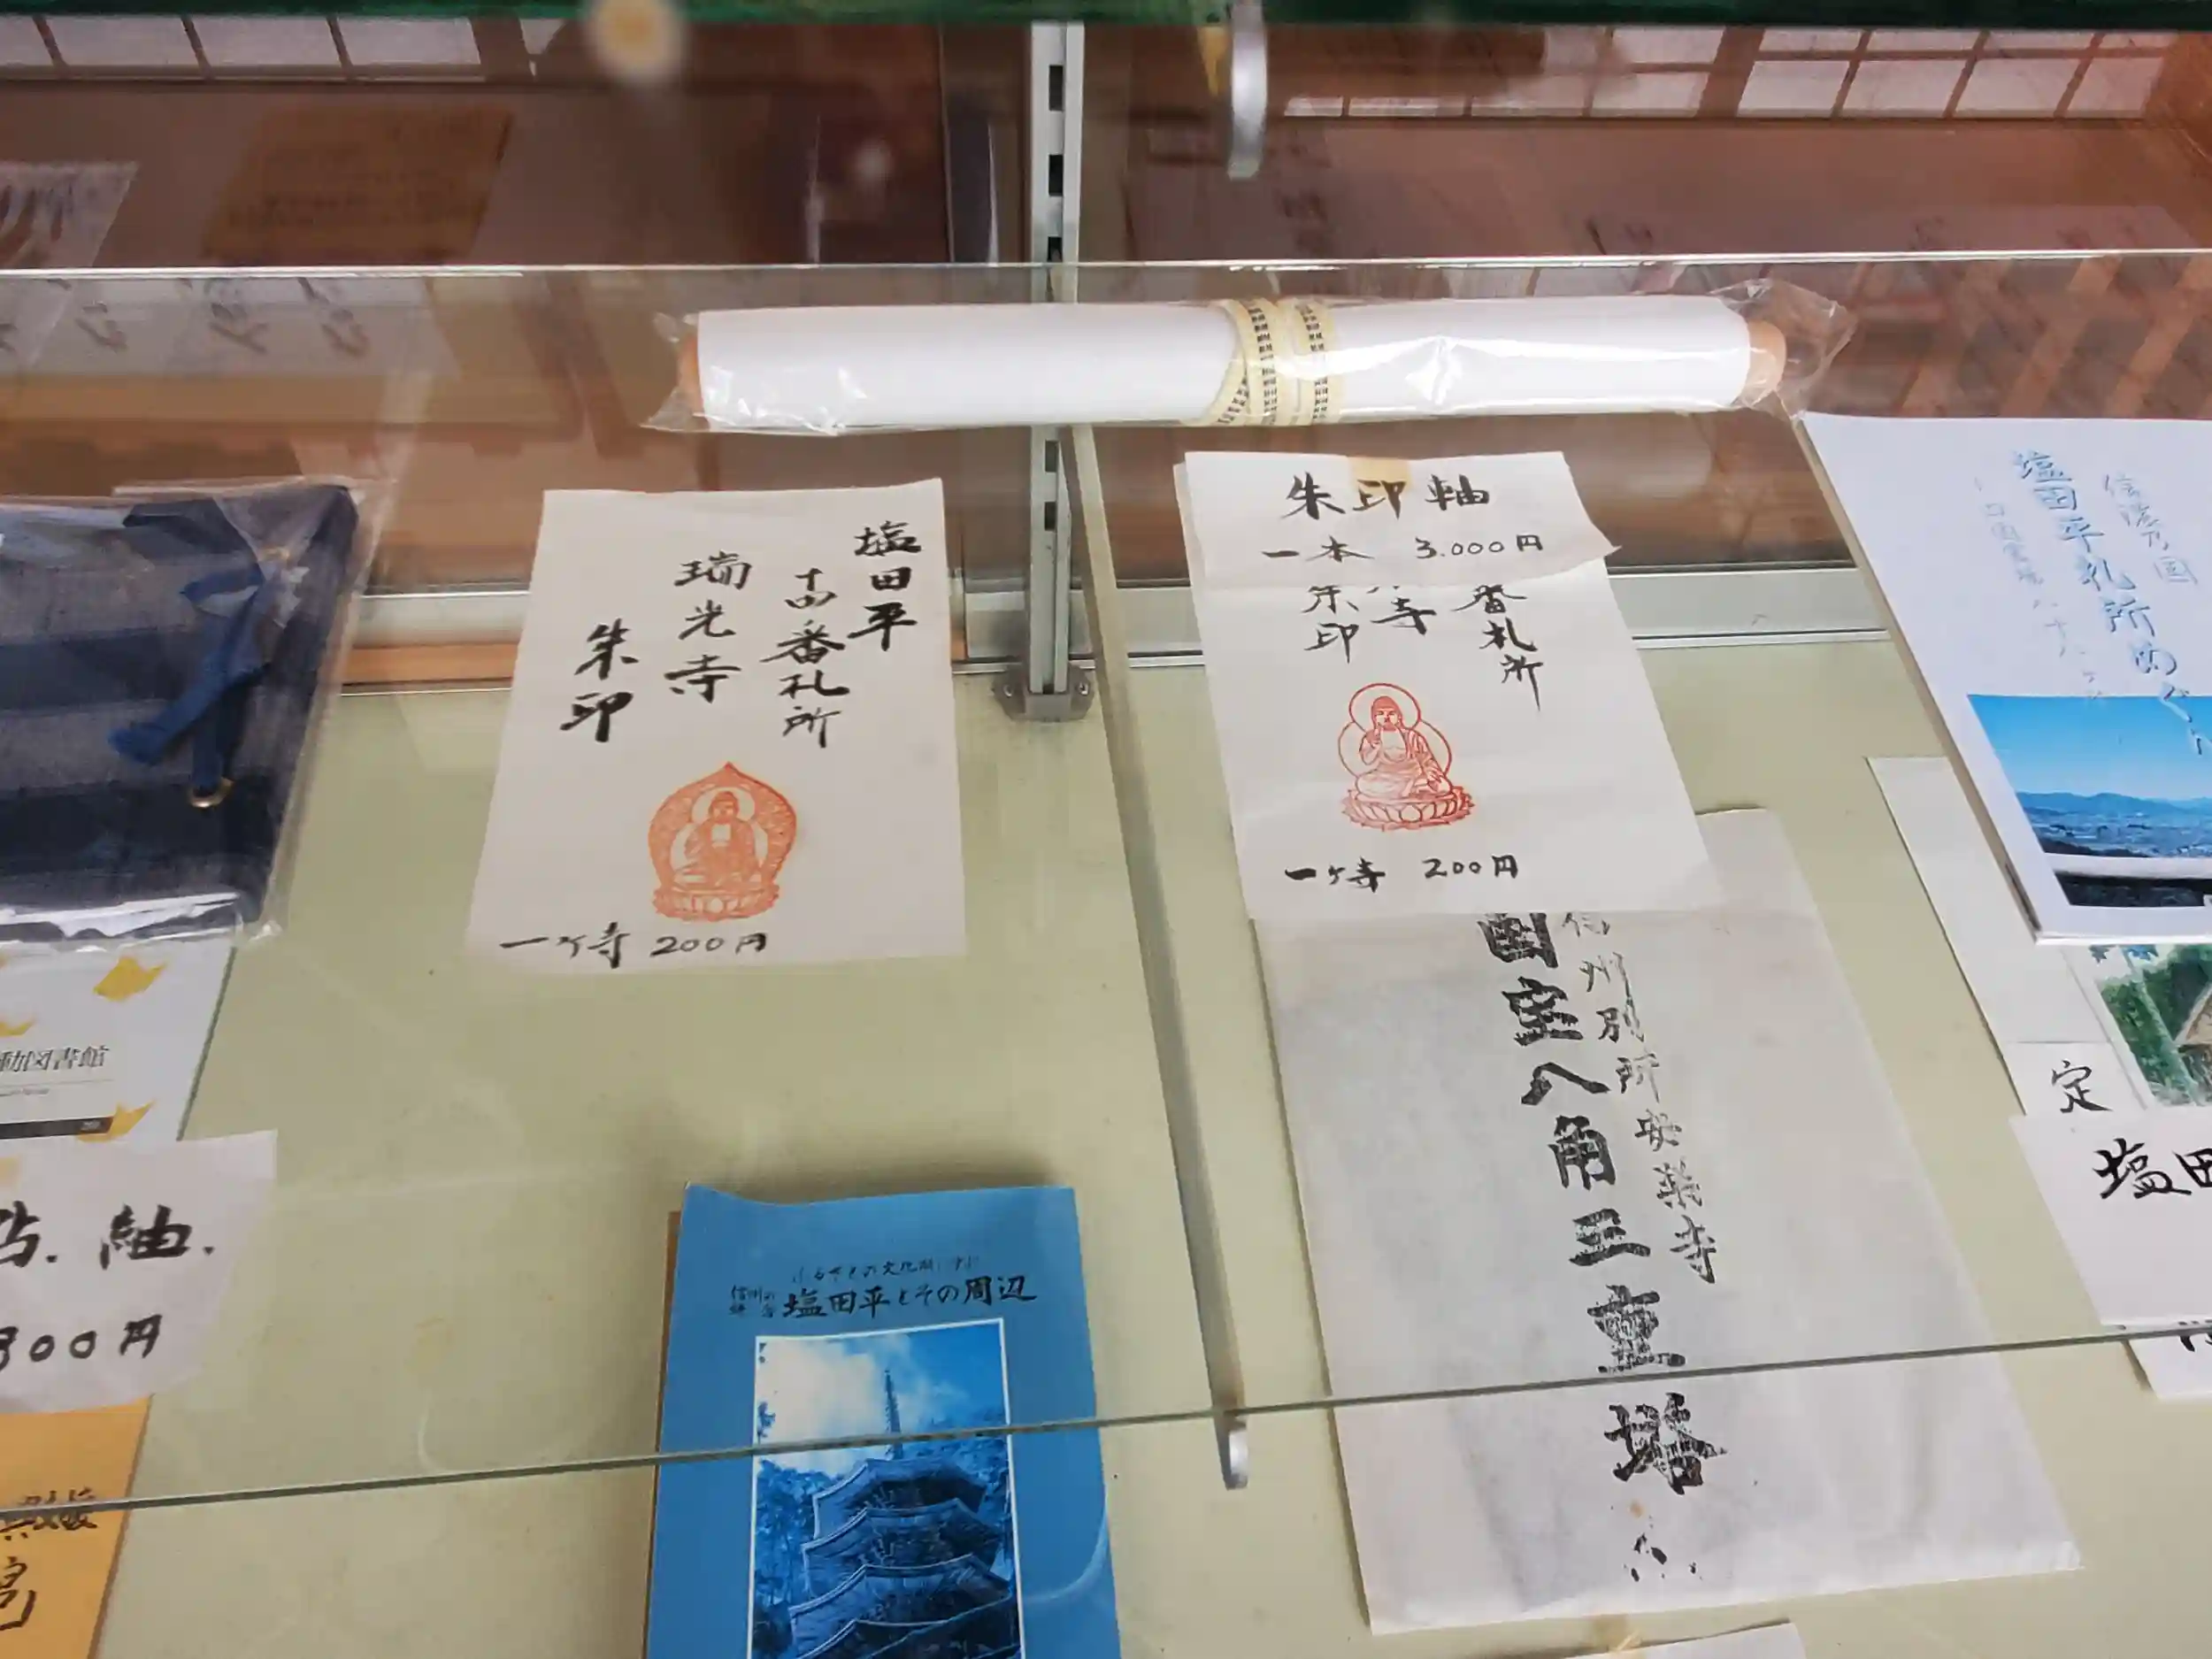 塩田平
十四番札所
瑞光寺
朱印
一ヶ寺 200円
朱印軸
一本 3.000円
番札所
寺
朱印
一ヶ寺 200円
信州別所安楽寺
国宝八角三重塔
信濃乃国
塩田平札所めぐり
動図書館
紬.
300円
塩田平とその周辺
定
塩田